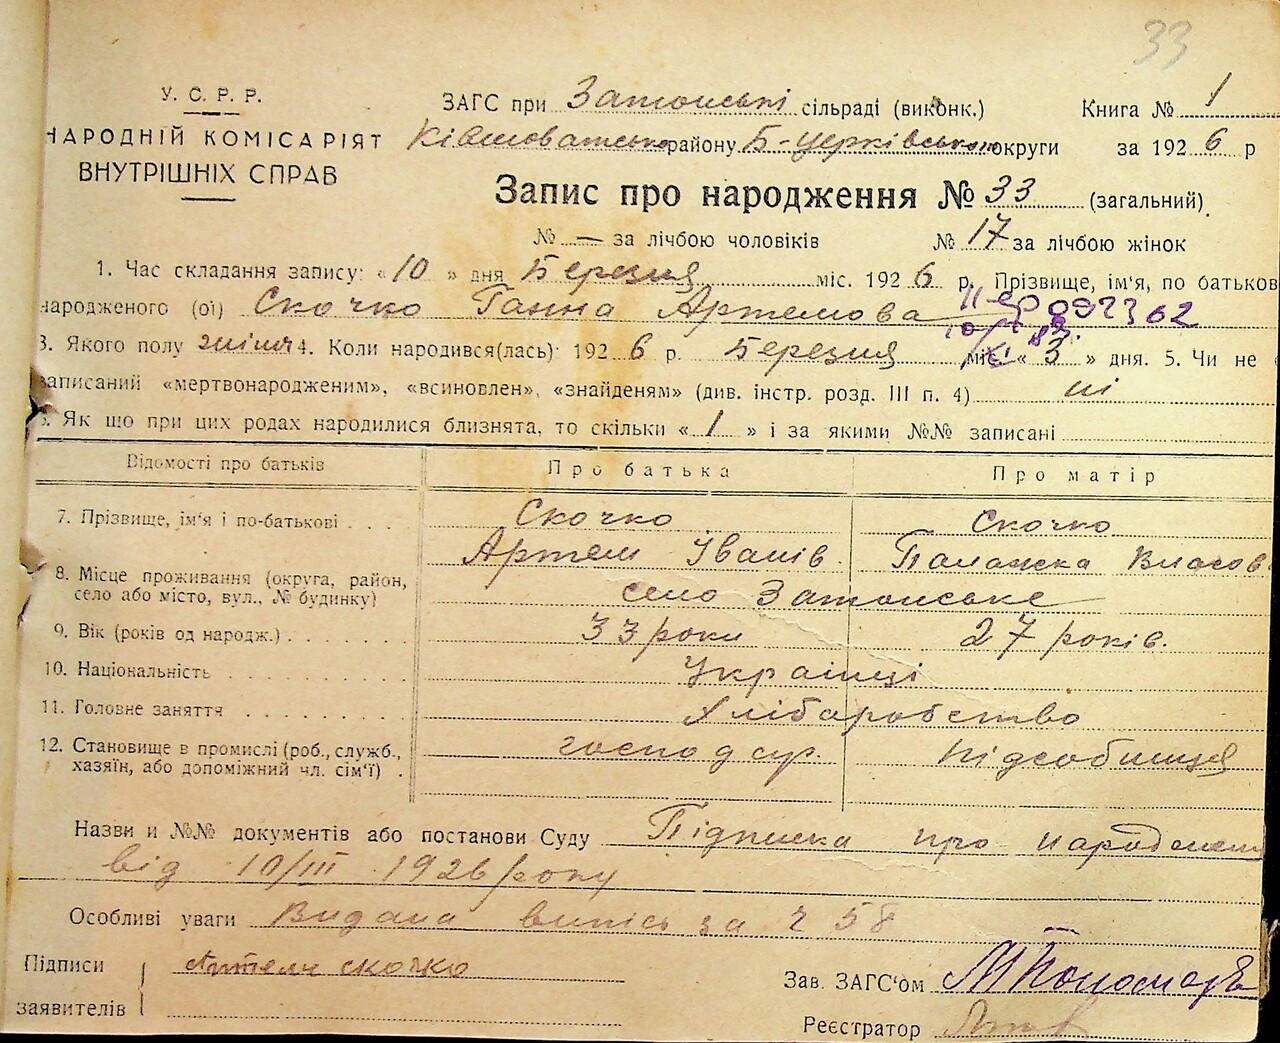 33
У. С. Р. Р.
НАРОДНІЙ КОМІСАРІЯТ
ВНУТРІШНІХ СПРАВ
ЗАГС при Затонські сільраді (виконк.) Книга № 1
Ківшоватсько району Б-Церківського округи за 1926 р
Запис про народження № 33 (загальний).
№ — за лічбою чоловіків № 17 за лічбою жінок
1. Час складання запису: « 10 » дня Березня міс. 1926 р. Прізвище, ім'я, по батьков
народженого (ої) Скочко Ганна Артемова
3. Якого полу жіноч 4. Коли народився(лась): 1926 р. Березня міс. « 3 » дня. 5. Чи не
записаний «мертвонародженим», «всиновлен», «знайденям» (див. інстр. розд. III п. 4) ні
6. Як що при цих родах народилися близнята, то скільки « 1 » і за якими №№ записані
Відомості про батьків Про батька Про матір
7. Прізвище, ім'я і по-батькові . . . Скочко Скочко
Артем Іванів. Паланска Власов.
8. Місце проживання (округа, район,
село або місто, вул., № будинку) село Затонське
9. Вік (років од народж.) . . . . . . 33 роки 27 років.
10. Національність . . . . . . . . . Українці
11. Головне заняття . . . . . . . . Хліборобство
12. Становище в промислі (роб., служб., господар. підсобниця
хазяїн, або допоміжний чл. сім'ї) .
Назви и №№ документів або постанови Суду Підписка про народження
від 10/III 1926 року
Особливі уваги Видана випись за ч 58
Підписи Артем скочко
заявителів
Зав. ЗАГС'ом
Реєстратор